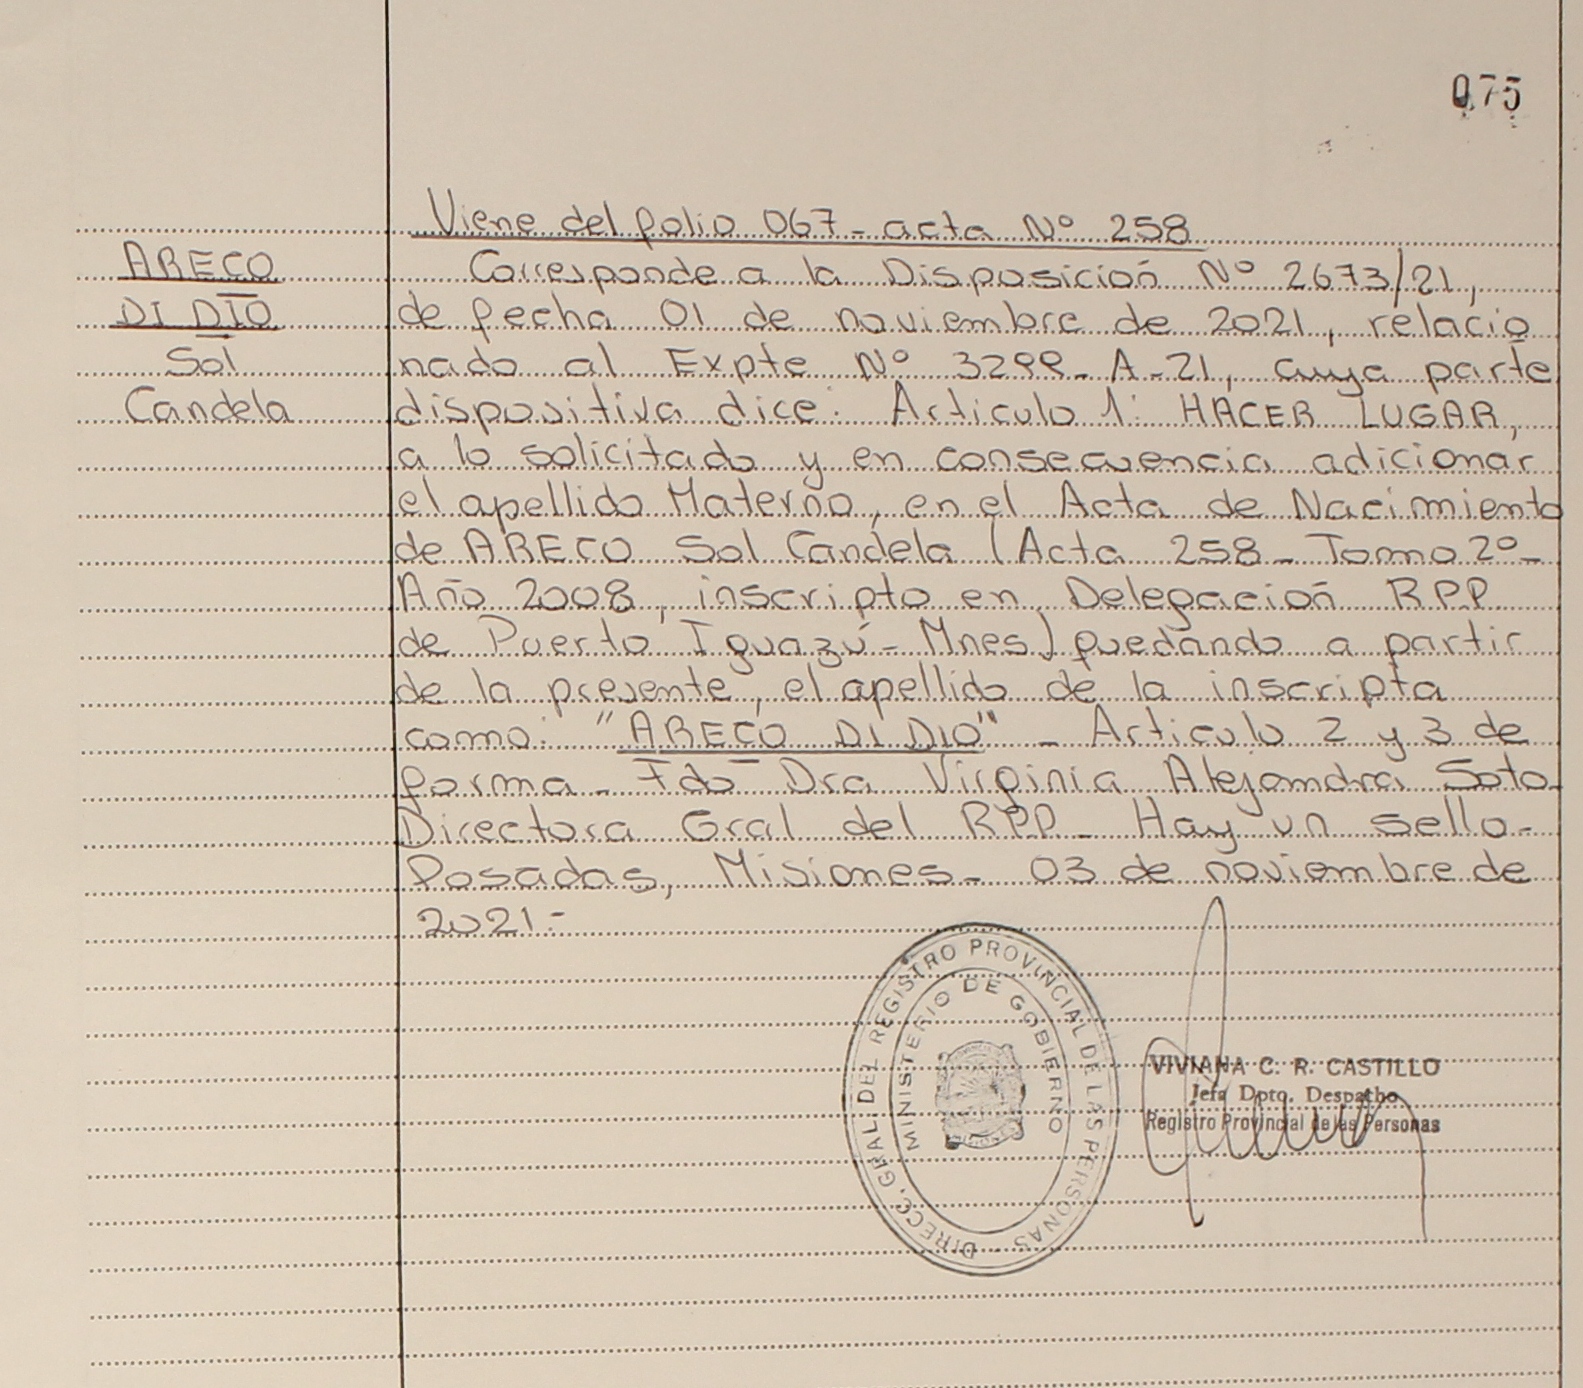 075
Viene del folio 067 - acta Nº 258
ARECO
DI DIO
Sol
Candela
Corresponde a la Disposición Nº 2673/21,
de fecha 01 de noviembre de 2021, relacio
nado al Expte Nº 3299 - A - 21, cuya parte
dispositiva dice: Articulo 1: HACER LUGAR,
a lo solicitado y en consecuencia adicionar
el apellido Materno, en el Acta de Nacimiento
de ARECO Sol Candela (Acta 258 - Tomo 2º -
Año 2008, inscripto en Delegación RPP
de Puerto Iguazú - Mnes) quedando a partir
de la presente, el apellido de la inscripta
como: "ARECO DI DIO" - Articulo 2 y 3 de
forma - Fdo Dra Virginia Alejandra Soto -
Directora Gral del RPP - Hay un sello -
Posadas, Misiones - 03 de noviembre de
2021 -
DIRECC. GRAL. DEL REGISTRO PROVINCIAL DE LAS PERSONAS
MINISTERIO DE GOBIERNO
VIVIANA C. R. CASTILLO
Jefa Dpto. Despacho
Registro Provincial de las Personas